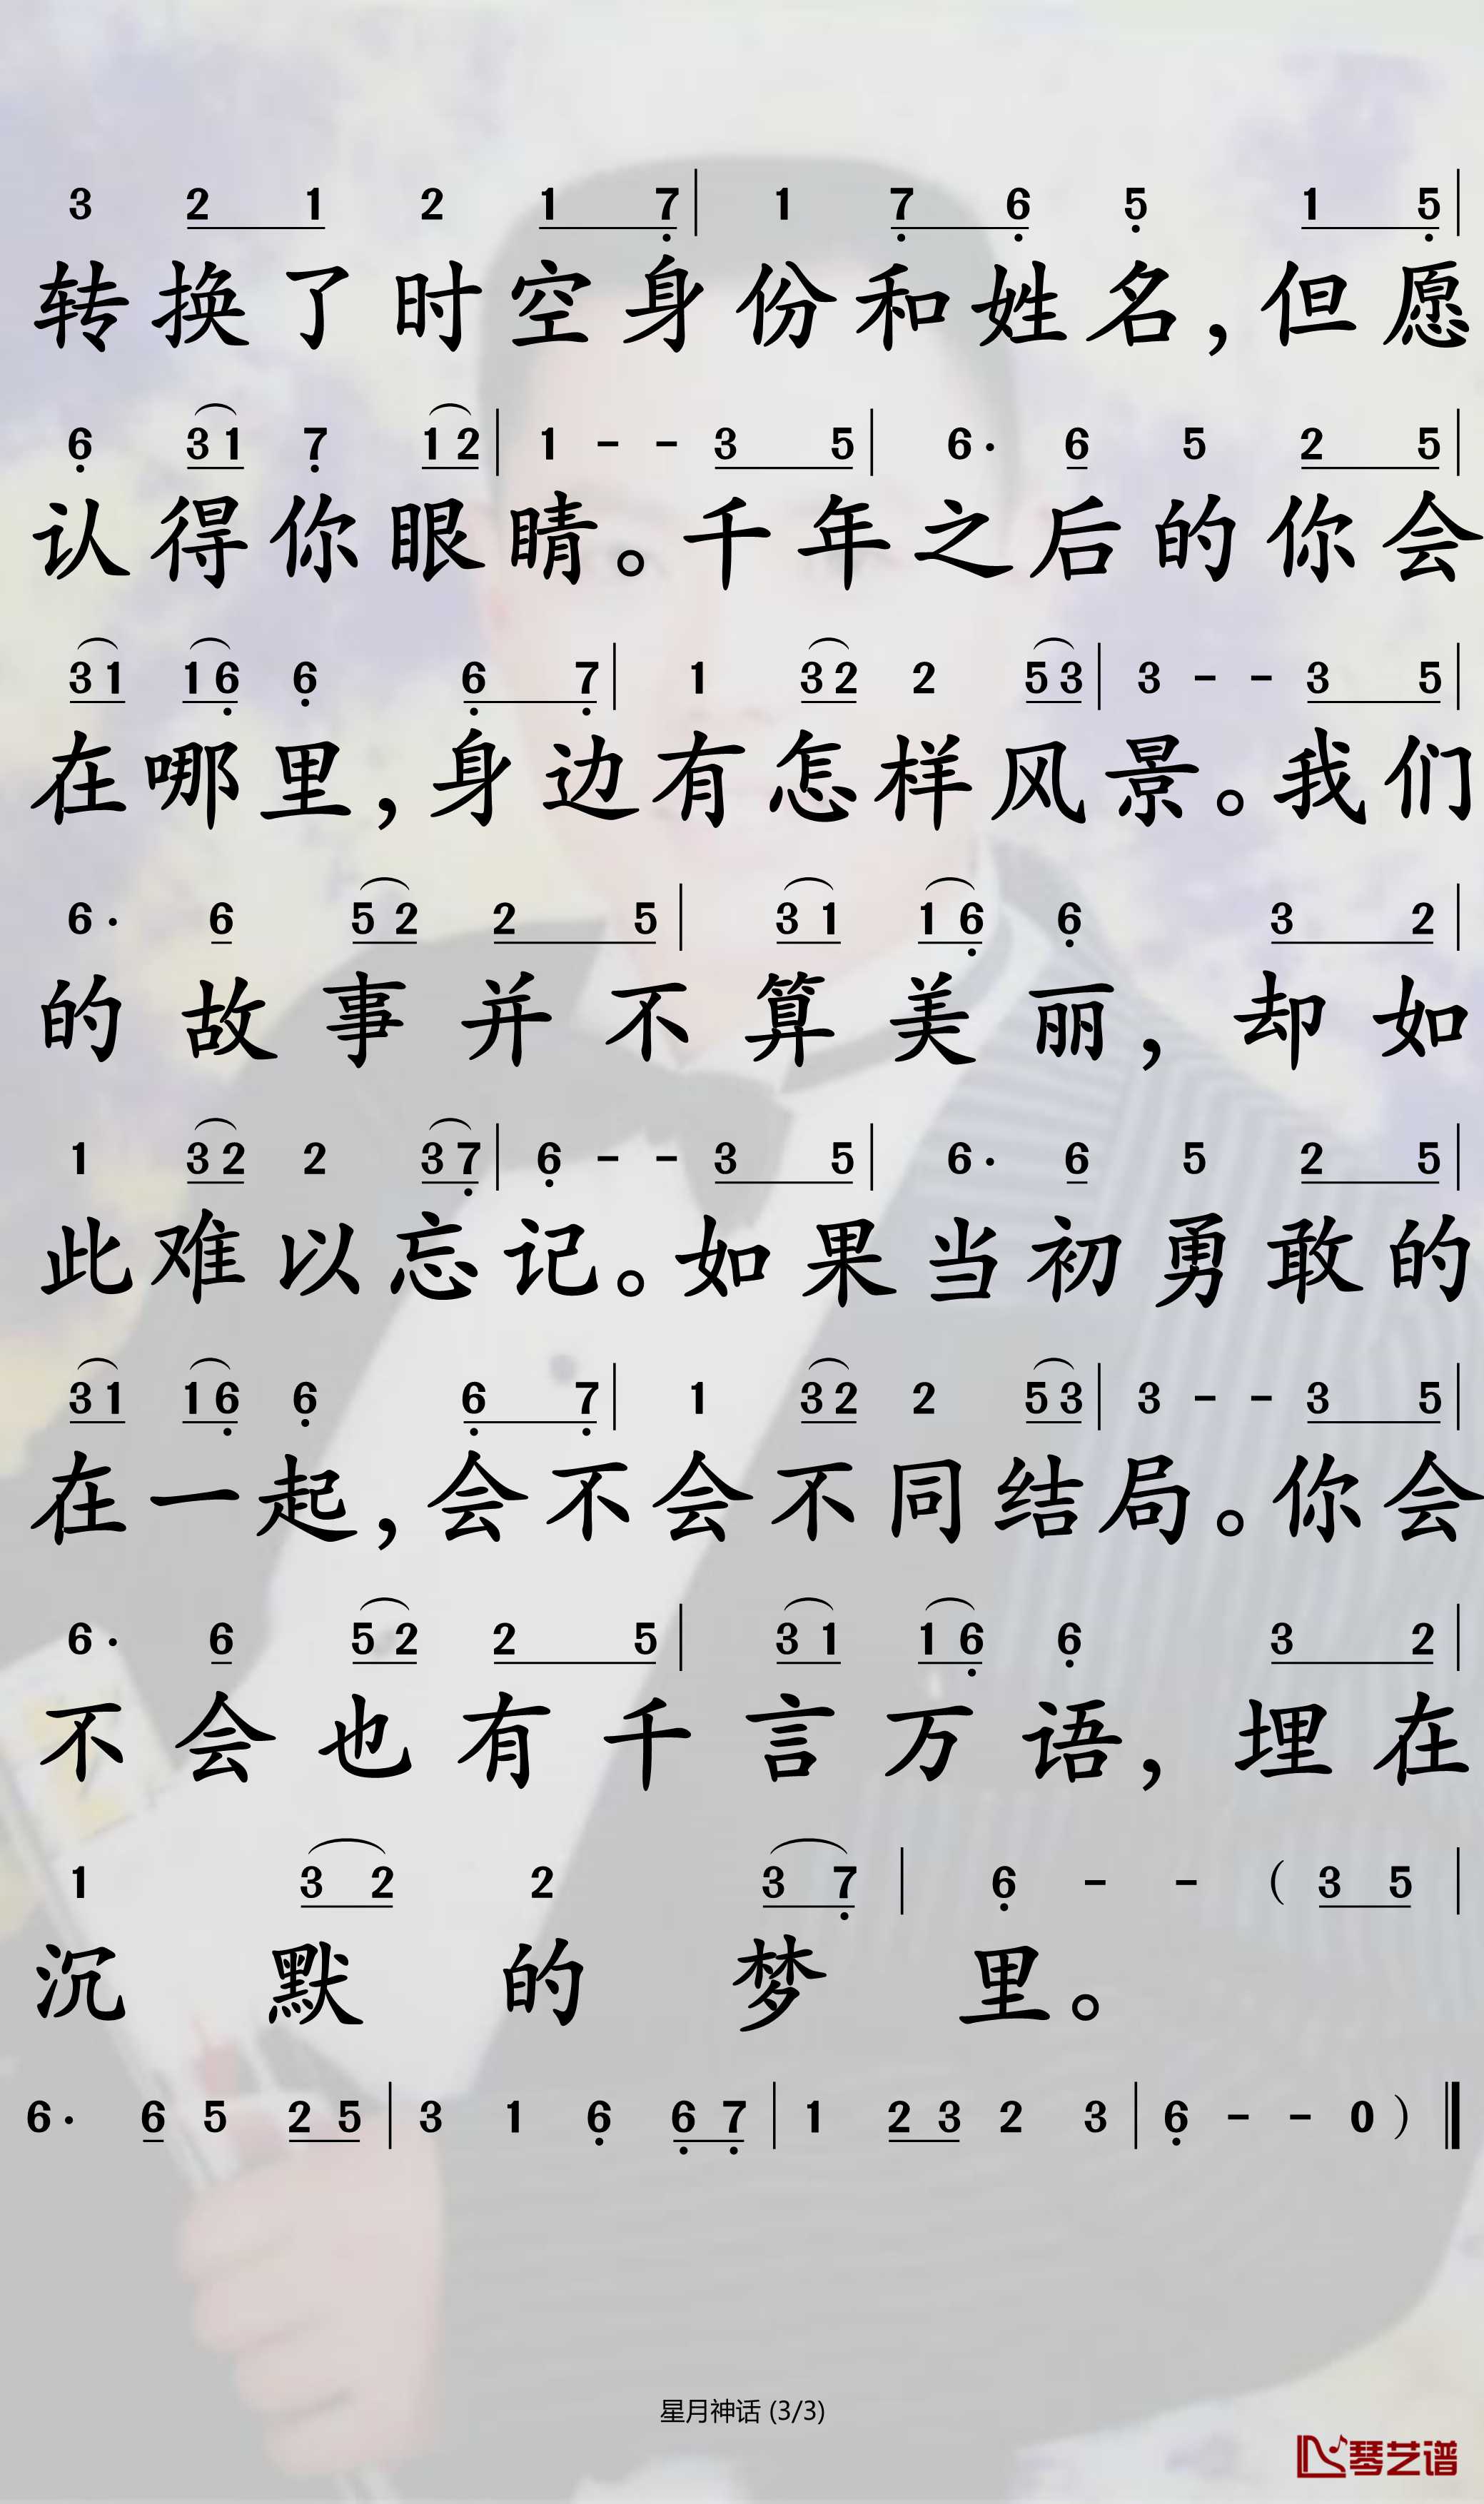 3 2 1 2 1 7 | 1 7 6 5 1 5 |
转换了时空身份和姓名,但愿
6 3 1 7 1 2 | 1 - - 3 5 | 6· 6 5 2 5 |
认得你眼睛。千年之后的你会
3 1 1 6 6 6 7 | 1 3 2 2 5 3 | 3 - - 3 5 |
在哪里,身边有怎样风景。我们
6· 6 5 2 2 5 | 3 1 1 6 6 3 2 |
的故事并不算美丽,却如
1 3 2 2 3 7 | 6 - - 3 5 | 6· 6 5 2 5 |
此难以忘记。如果当初勇敢的
3 1 1 6 6 6 7 | 1 3 2 2 5 3 | 3 - - 3 5 |
在一起,会不会不同结局。你会
6· 6 5 2 2 5 | 3 1 1 6 6 3 2 |
不会也有千言万语,埋在
1 3 2 2 3 7 | 6 - - ( 3 5 |
沉默的梦里。
6· 6 5 2 5 | 3 1 6 6 7 | 1 2 3 2 3 | 6 - - 0 )
星月神话 (3/3)
琴艺谱